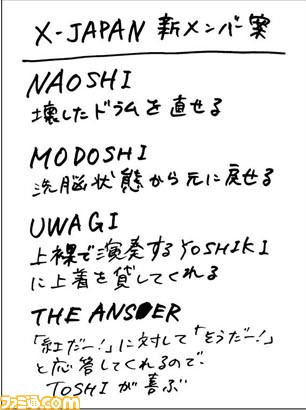 X-JAPAN 新メンバー案
NAOSHI
壊したドラムを直せる
MODOSHI
洗脳状態から元に戻せる
UWAGI
上裸で演奏するYOSHIKI
に上着を貸してくれる
THE ANSWER
「紅だー!」に対して「そうだー!」
と応答してくれるので、
TOSHIが喜ぶ
ファミ通.com